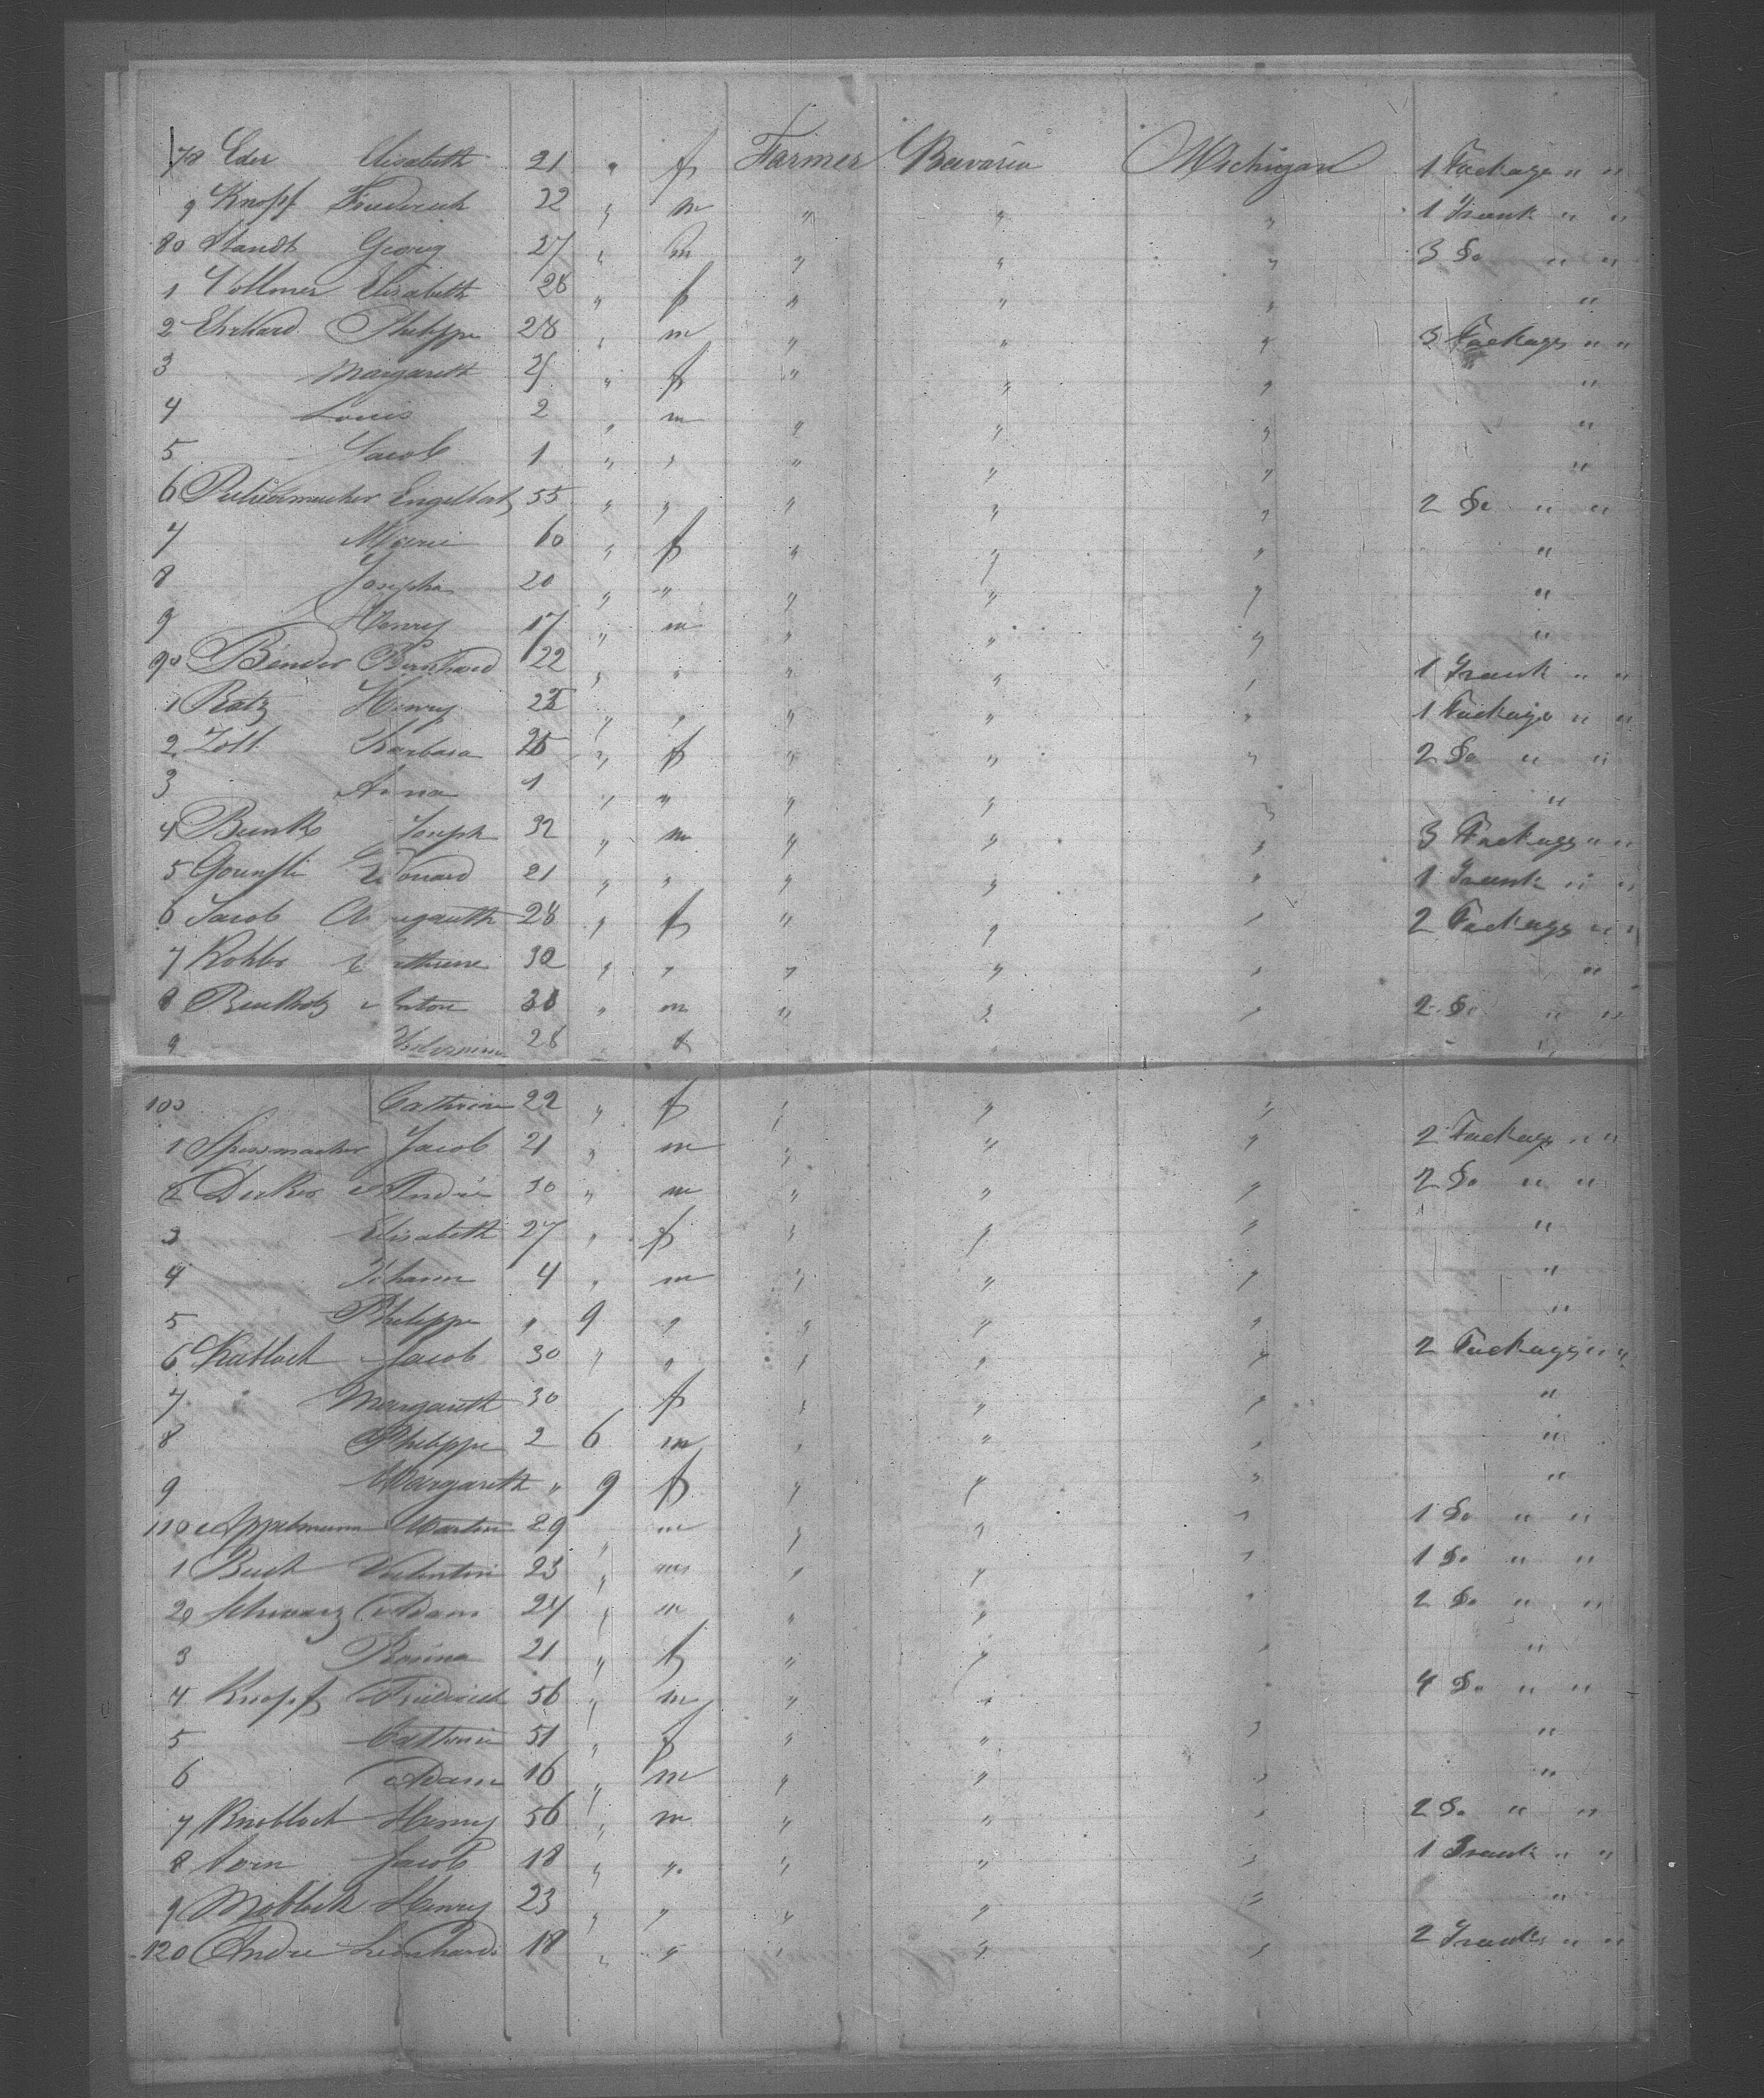 78 Eder Elisabeth 21 " f Farmer Bavaria Michigan 1 Package " "
9 Knopf Friederich 22 " m " " " 1 Trunk " "
80 Standt Georg 27 " m " " " 3 Do " "
1 Vollmer Elisabeth 26 " f " " " "
2 Ehrhard Philippe 28 " m " " " 3 Packages " "
3 Margareth 25 " f " " " "
4 Louis 2 " m " " " "
5 Jacob 1 " " " " " "
6 Engelbert 55 " " " " " 2 Do " "
7 Marie 60 " f " " " "
8 Josepha 20 " " " " " "
9 Henry 17 " m " " " "
90 Bender Bernhard 22 " " " " " 1 Trunk " "
1 Ratz Henry " " " " " 1 Package " "
2 Zoll Barbara " f " " " 2 Do " "
3 Anna 1 " " " " " "
4 Bunk Joseph 32 " m " " " 3 Packags " "
5 Edouard 21 " " " " " 1 Trunk " "
6 Jacob Margareth 28 " f " " " 2 Packags " "
7 Kohbr Cathrine 30 " " " " " "
8 Anton 38 " m " " " 2 Do " "
9 28 f "
100 Cathrine 22 " f " " "
1 Jacob 21 " m " " " 2 Package " "
2 André 30 " m " " " 2 Do " "
3 Elisabeth 27 " f " " " "
4 Johann 4 " m " " " "
5 Philippe " 9 " " " " "
6 Jacob 30 " " " " " 2 Packages " "
7 Margareth 30 f " " " "
8 Philippe 2 6 m " " " "
9 Margareth " 9 f " " " "
110 Appelmann Martin 29 " m " " " 1 Do " "
1 Valentin 23 " m " " " 1 Do " "
2 Schwarz Adam 24 " m " " " 2 Do " "
3 Rosina 21 " f " " " "
4 Knopf Friederich 56 " m " " 4 Do " "
5 Cathrine 51 " f " " " "
6 Adam 16 " m " " " "
7 Knobloch Henry 56 " m " " " 2 Do " "
8 Jacob 18 " " " " " 1 Trunk " "
9 Henry 23 " " " " " "
120 Andre Leonhard 18 " " " " " 2 Trunks " "